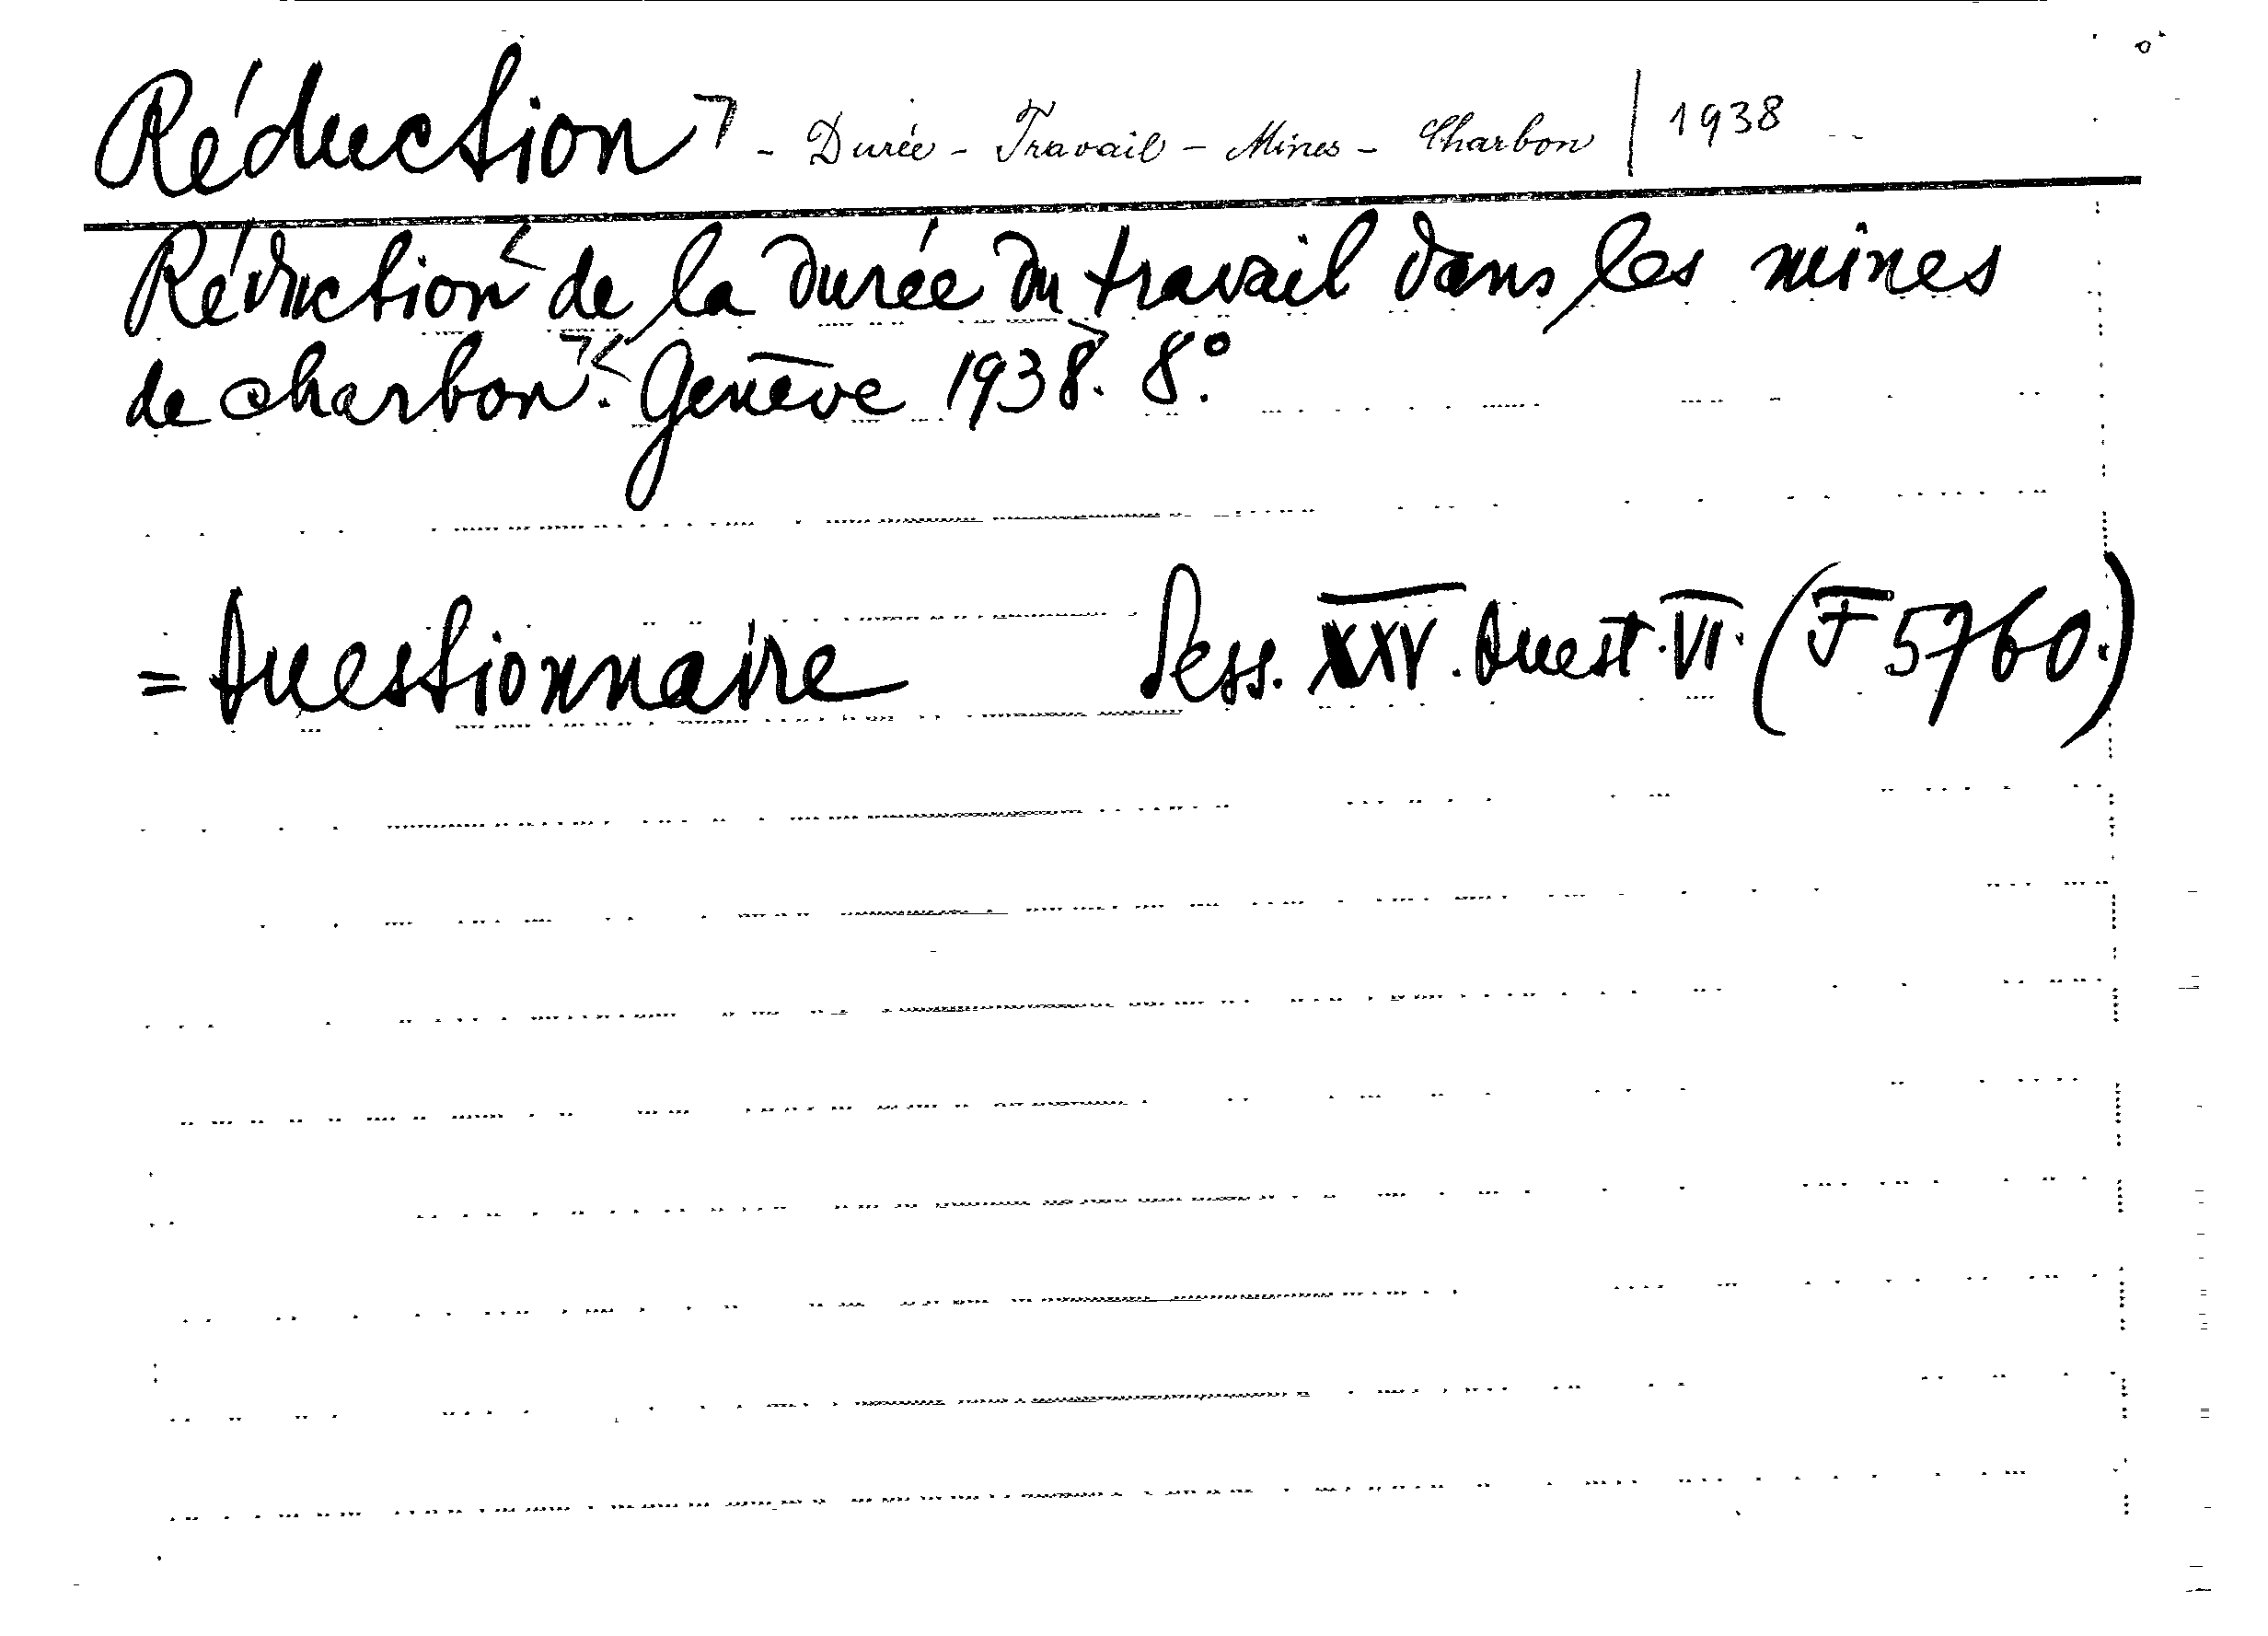 Réduction - Durée - Travail - Mines - Charbon | 1938
Réduction de la durée du travail dans les mines
de charbon. Genève 1938. 8°.
= Questionnaire Sess. XXV. Quest. VI. (F 5760.)